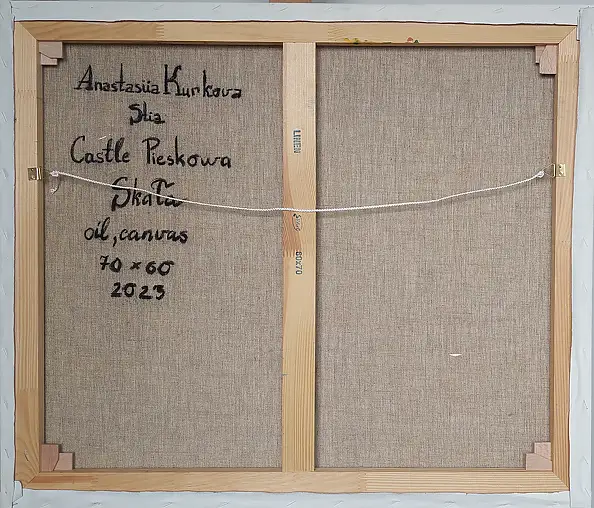 Anastasiia Kurkova
Slia
Castle Pieskowa
Skała
oil, canvas
70 x 60
2023
LINEN
60x70